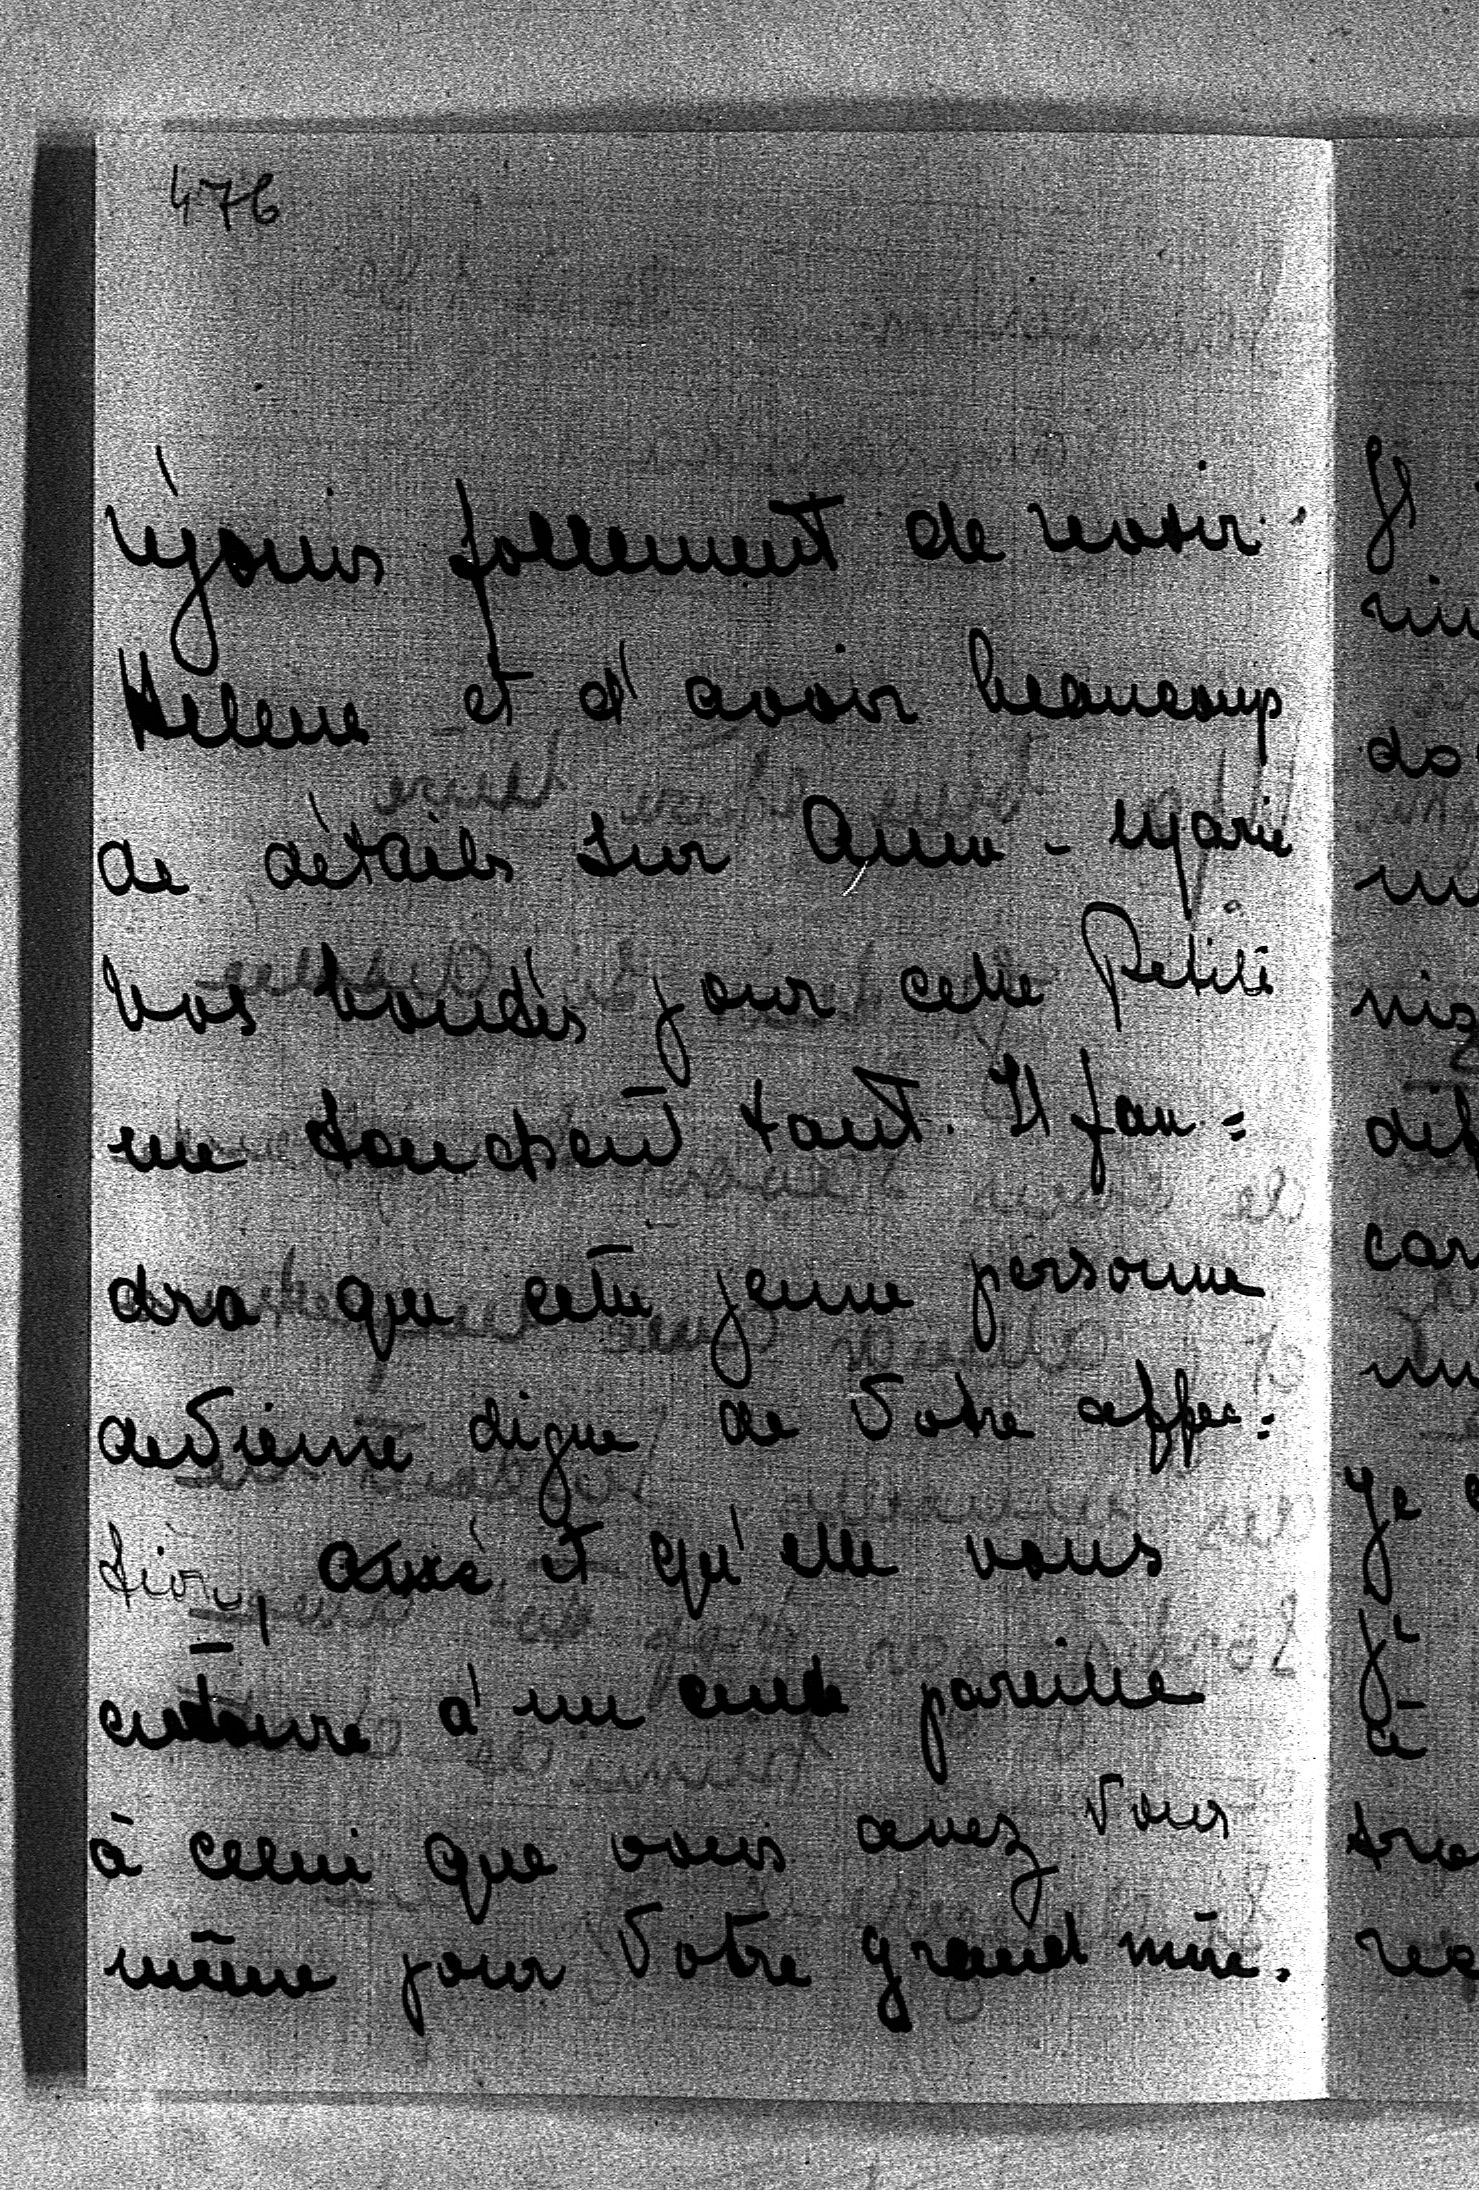 476
réjouis follement de revoir
Helene et d'avoir beaucoup
de détails sur Anna-Marie
Vos bontés pour cette Petite
me touchent tant. Il fau=
dra que cette jeune personne
devienne digne de Votre affec=
tion, et qu'elle vous
entoure d'un culte pareille
à celui que vous avez Vous
même pour Votre grand mère.